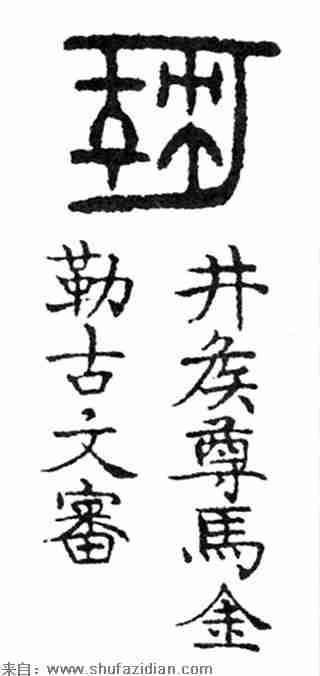 井矦尊馬金
勒古文審
来自：www.shufazidian.com